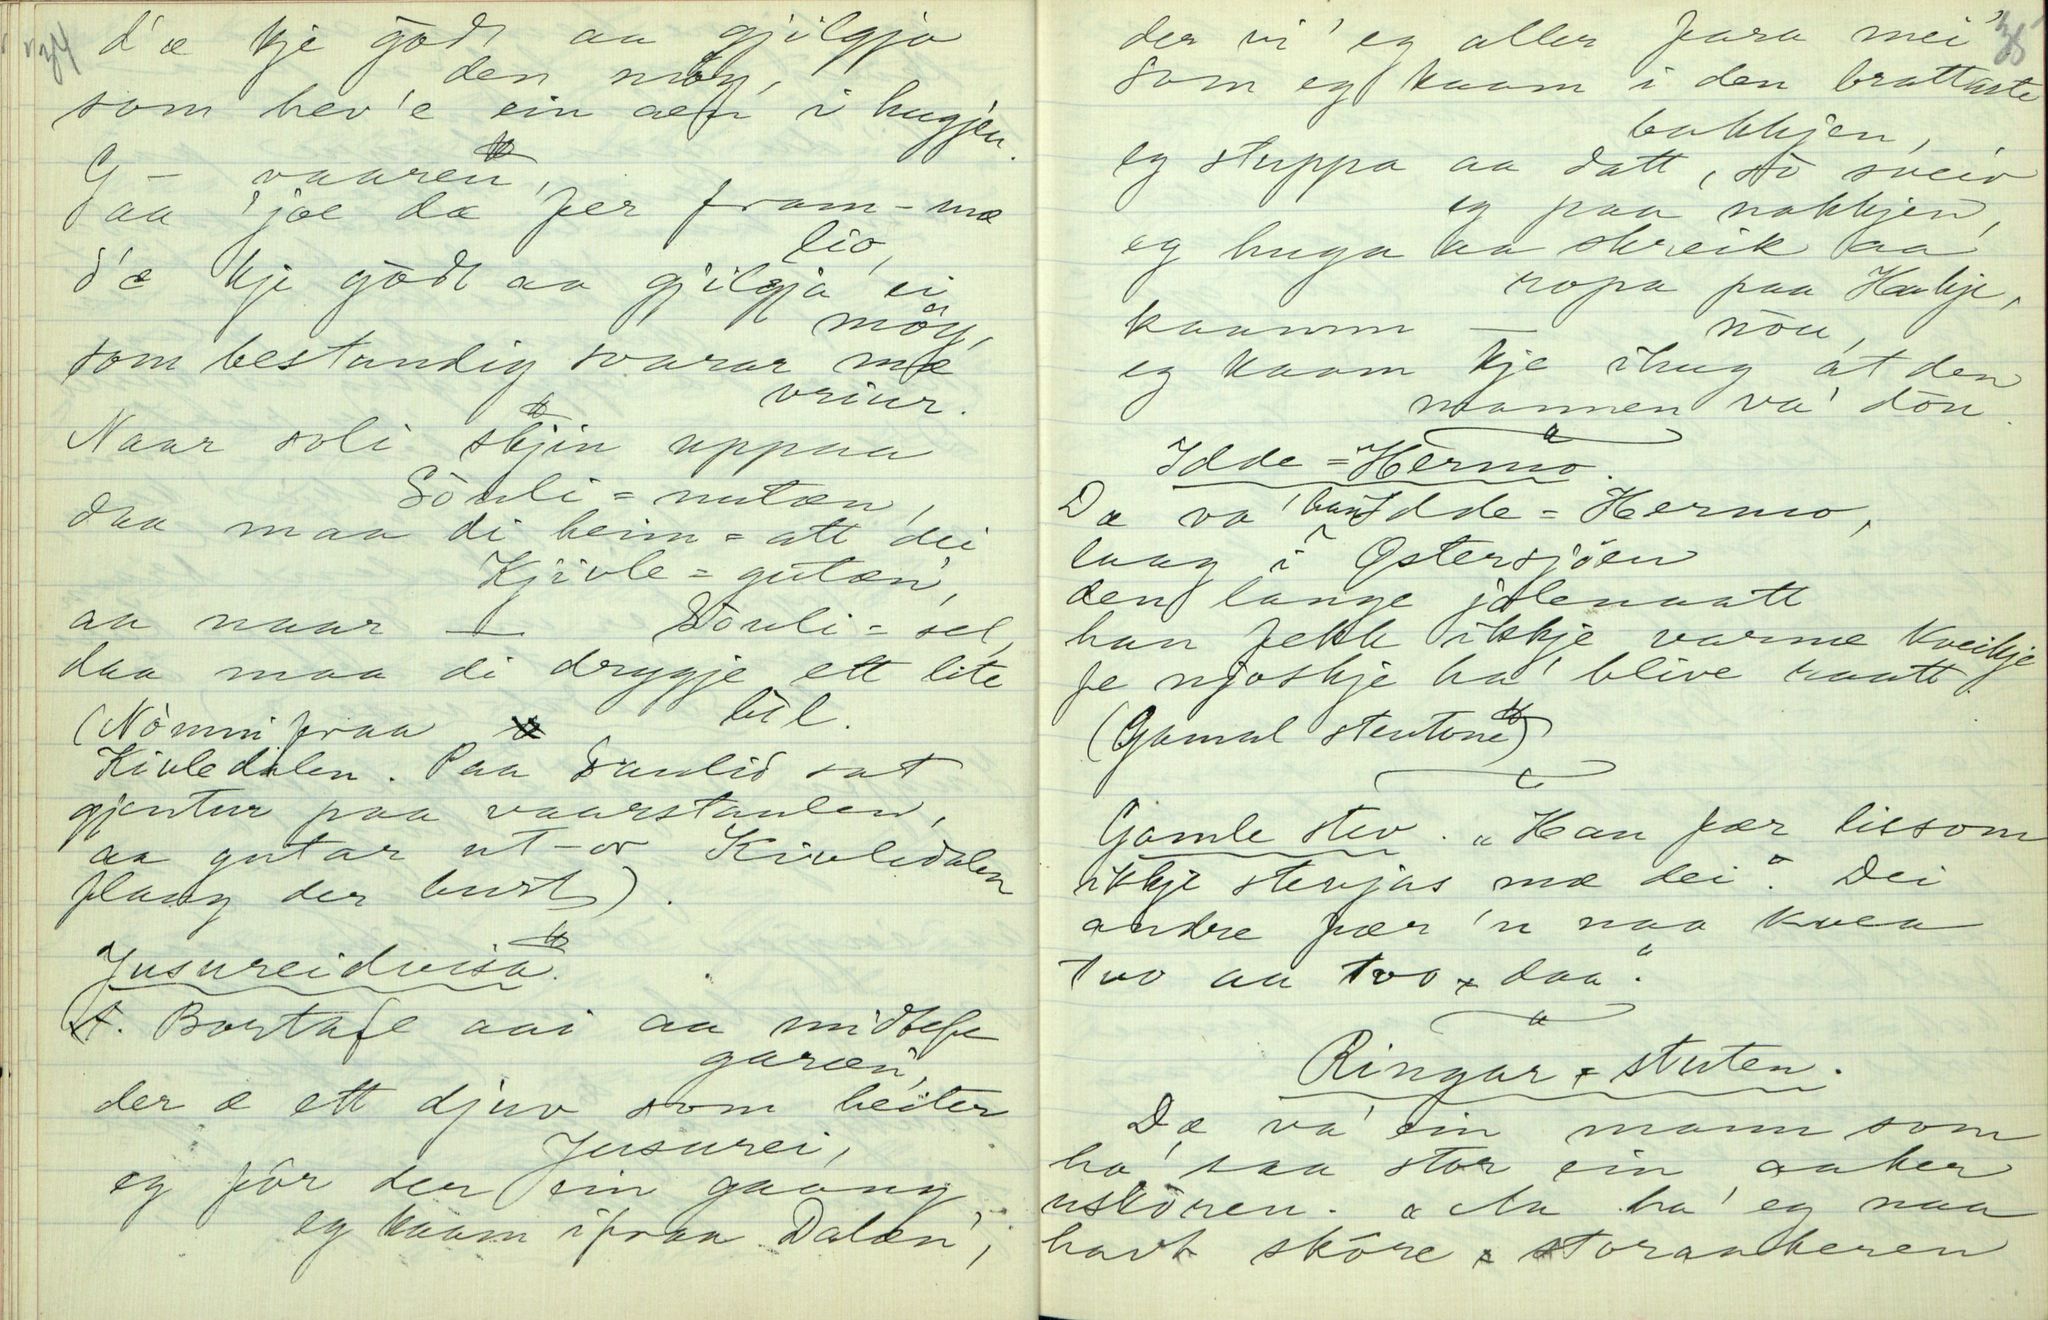 d'æ kje gødt aa gjilgja
den möy,
som hev'e ein aen i hugjen.
G – vaaren,
aa 'joe da fer fram-mæ
lio,
d'æ kje gødt aa gjilgja ei
möy,
som bestandig svarar mæ
vriur.
Naar soli skjin uppaa
Sönli=nutæn,
daa maa di heim=att dei
Kjivle=gutæn,
aa naar — Sönli=sel,
daa maa di drygje ett lite
bil.
(Nömmi fraa
Kivledalen. Paa Sanlid sat
gjentur paa vaarstaulen,
aa gutar ut-or Kivledalen
flaug der burt).
Jusureidvisa.
A. Bortafe aai aa midtefe
garæn,
der æ ett djuv som heiter
Jusurei,
eg för der ein gaang
eg kaam ifraa Dalæn,
der vi' eg aller fara mei'
som eg kaam i den brattaste
bakkjen,
eg stuppa aa datt, so sveiv
eg paa nakkjen,
eg huga aa skreik aa
ropa paa Haakje,
kaamm — nöu,
eg kaam kje ihug at den
mannen va' döu.
Idde=Hermo.
Dæ va' han Idde=Hermo,
laag i Østersjöen
den lange jolenaatt
han fekk ikkje varme kveikje
fe njoskje ha' blive vaatt.
(Gamal stevtone)
Gamle stev. "Han fær lissom
ikkje stevjas mæ dei". Dei
andre fær 'n naa kvea
tvo aa tvo, daa".
Ringar-stuten.
Dæ va' ein mann som
ha' saa stor ein aaker
uskoren. "Aa ha' eg naa
havt skore storaakeren